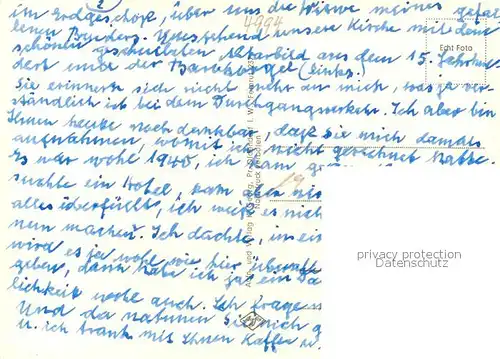 2
im Erdgeschoß, über uns die Witwe meines gefal-
lenen Bruders. Umstehend unsere Kirche mit dem
schönen geschnitzten Altarbild aus dem 15. Jahrhun-
dert unter der Barockorgel (links).
Sie erinnern sich nicht mehr an mich, was ja ver-
ständlich ist bei dem Durchgangsverkehr. Ich aber bin
Ihnen heute noch dankbar, daß Sie mich damals
aufnahmen, womit ich nicht gerechnet hatte.
Es war wohl 1940, ich kam
suchte ein Hotel, kam aber
alles überfüllt, ich weiß es nich
nun machen. Ich dachte, in ein
wird es ja wohl wie hier
geben, dann habe ich ja ein Da
lichkeit wohl auch. Ich frage
Und da nahmen Sie mich
u. ich trank mit Ihnen Kaffee u.
4994
Echt Foto
19
Nachdruck verboten
privacy protection
Datenschutz